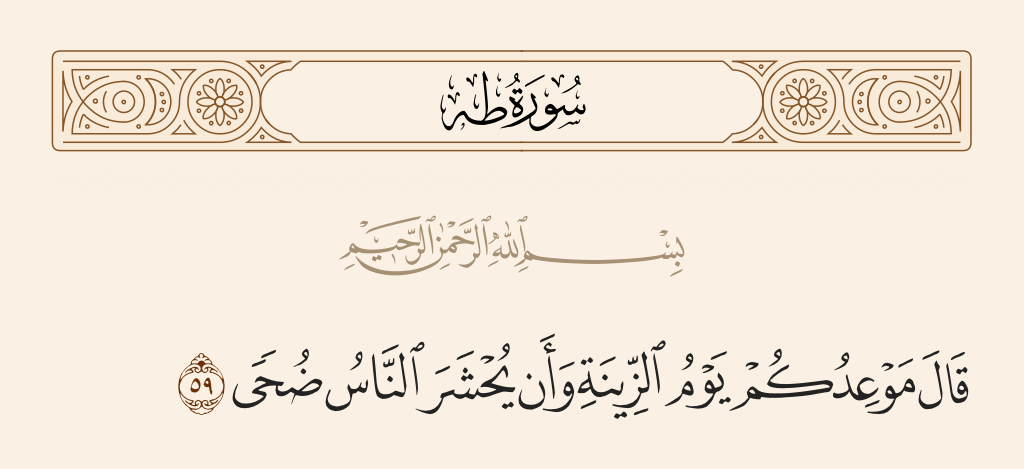 سُورَةُ طه
بِسْمِ ٱللَّهِ ٱلرَّحْمَٰنِ ٱلرَّحِيمِ
قَالَ مَوْعِدُكُمْ يَوْمُ ٱلزِّينَةِ وَأَن يُحْشَرَ ٱلنَّاسُ ضُحًى ٥٩